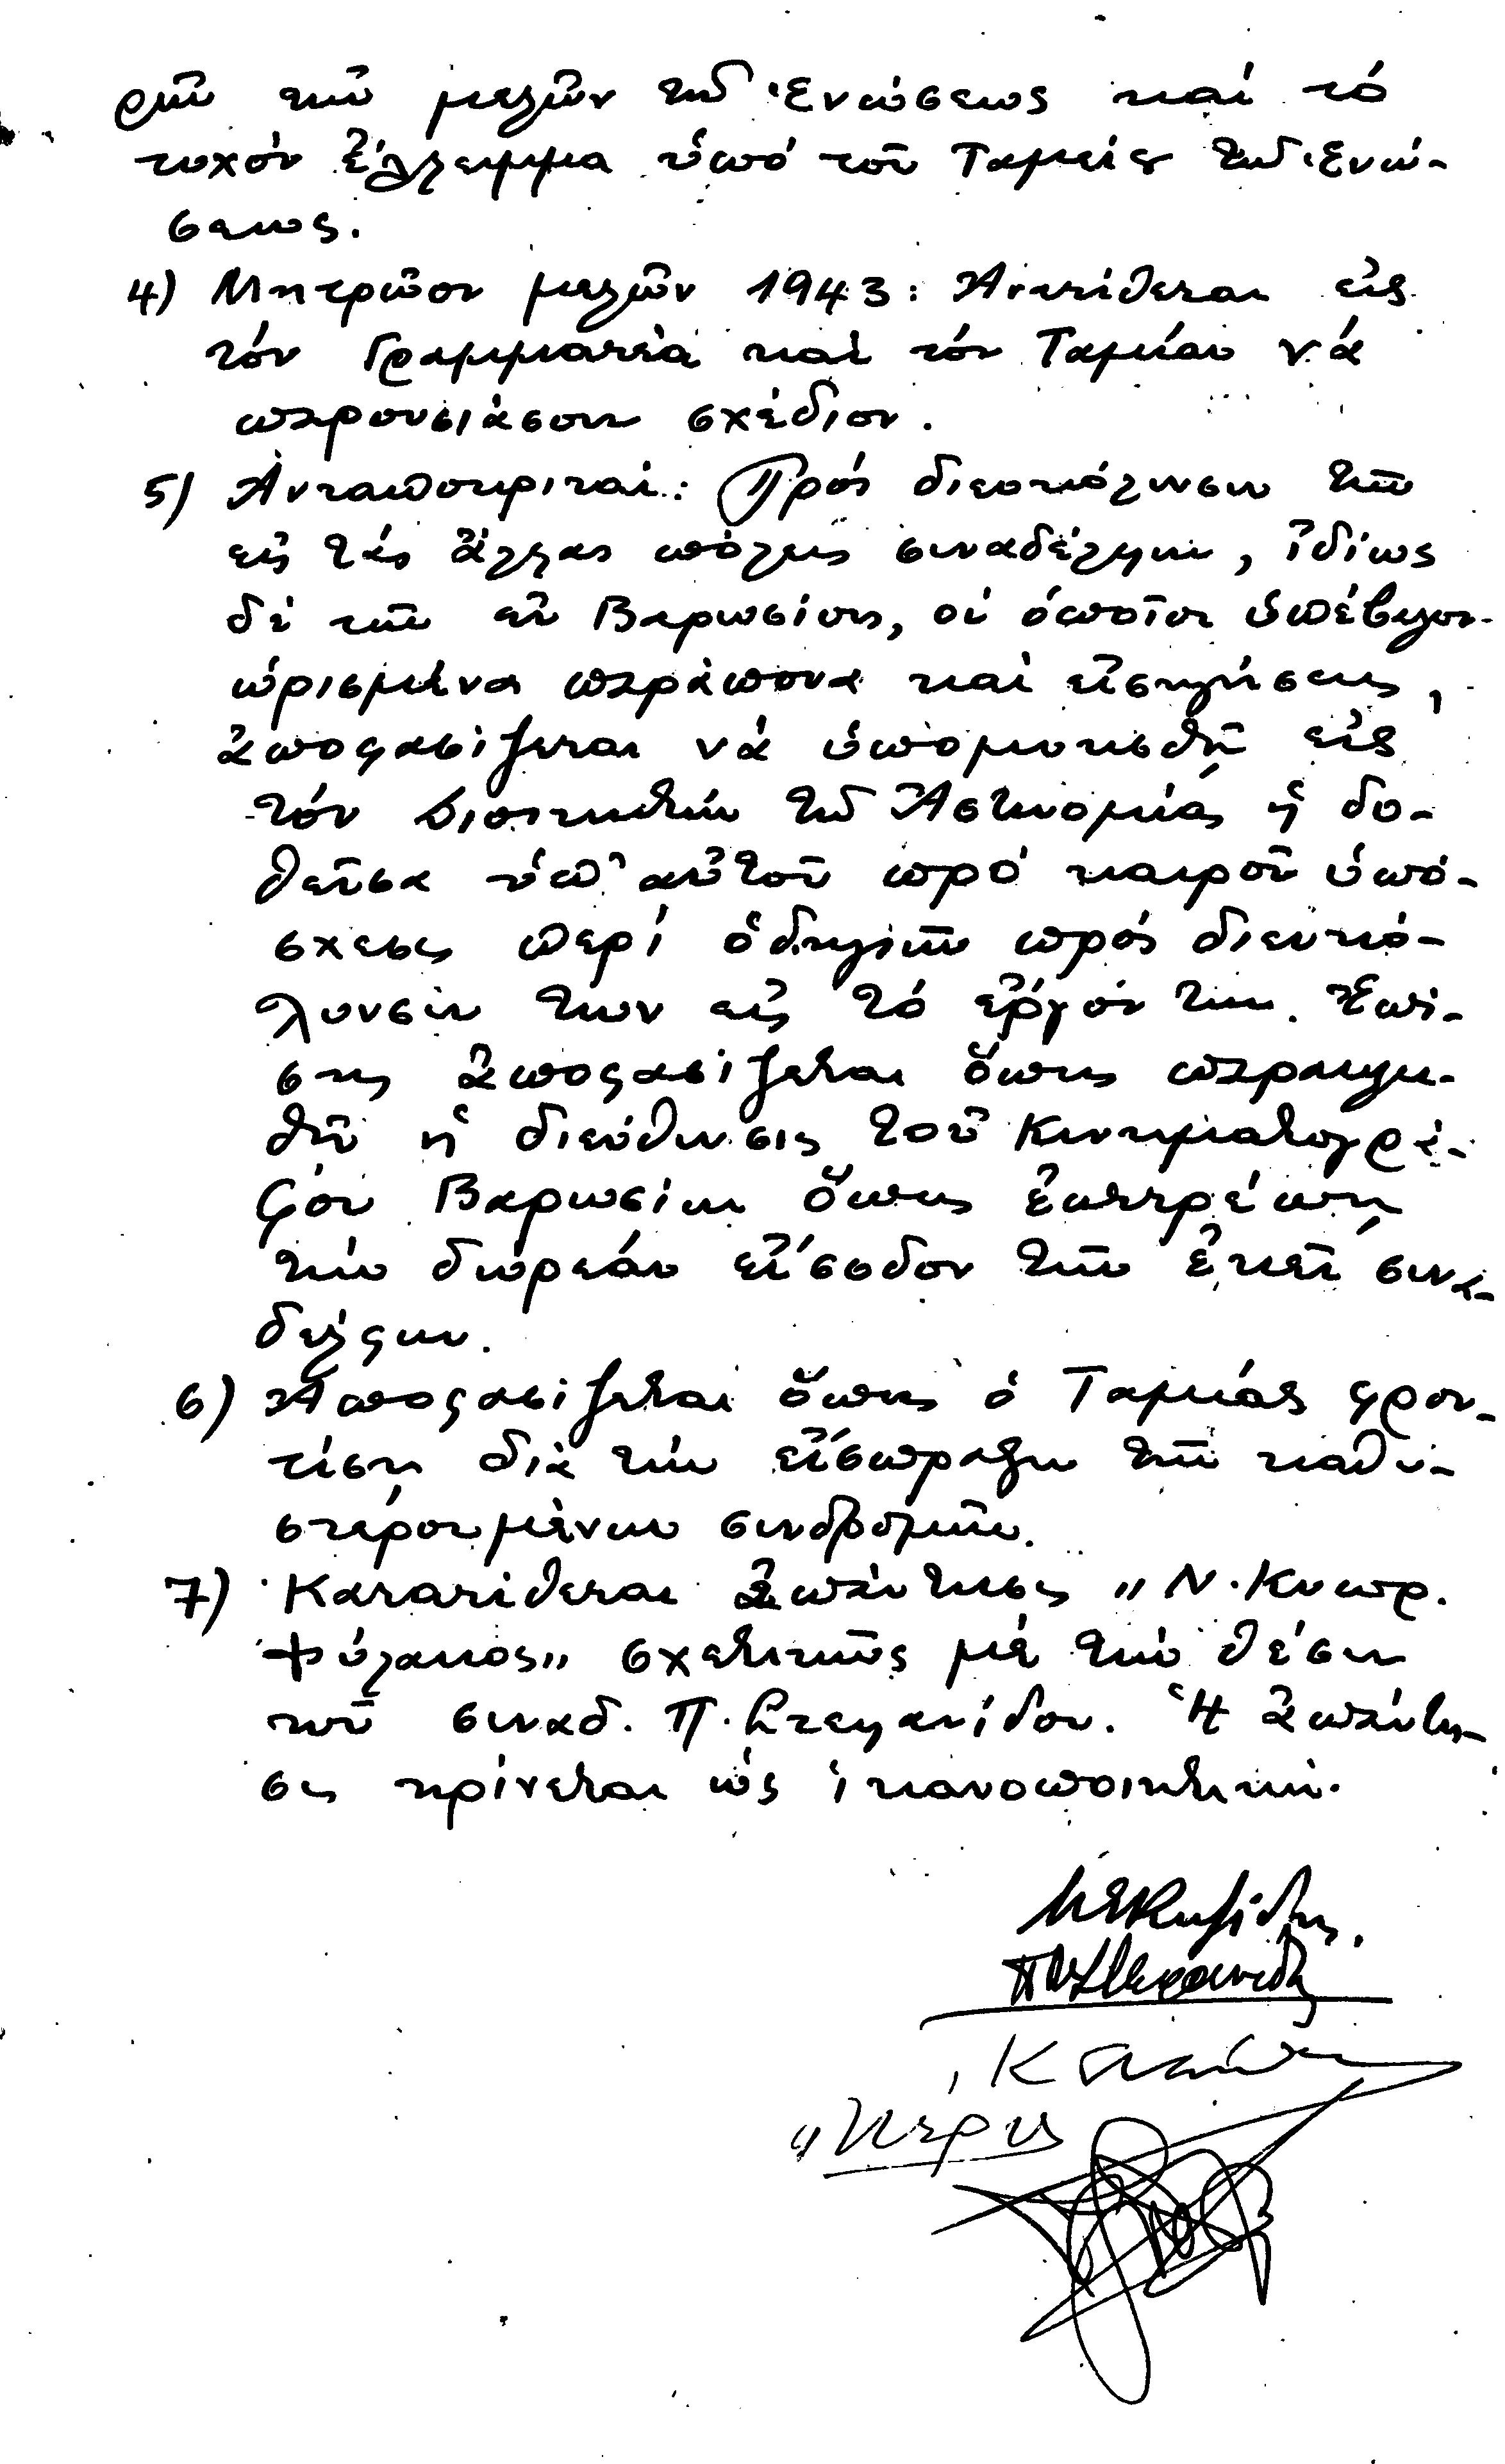 ρῶν τῶν μελῶν τῆς Ἑνώσεως καὶ τὸ
τυχὸν ἔλλειμμα ὑπὸ τοῦ Ταμείου τῆς Ἑνώ-
σεως.
4) Μητρῷον μελῶν 1943: Ἀνατίθεται εἰς
τὸν Γραμματέα καὶ τὸν Ταμίαν νὰ
παρουσιάσουν σχέδιον.
5) Ἀνταποκριταί: Πρὸς διευκόλυνσιν τῶν
εἰς τὰς ἄλλας πόλεις συναδέλφων, ἰδίως
δὲ τῶν ἐν Βαρωσίοις, οἱ ὁποῖοι ὑπέβαλον
ὡρισμένα παράπονα καὶ εἰσηγήσεις,
ἀποφασίζεται νὰ ὑπομνησθῇ εἰς
τὸν Διοικητὴν τῆς Ἀστυνομίας ἡ δο-
θεῖσα ὑπ' αὐτοῦ πρὸ καιροῦ ὑπό-
σχεσις περὶ ὁδηγιῶν πρὸς διευκό-
λυνσίν των εἰς τὸ ἔργον των. Ἐπί-
σης ἀποφασίζεται ὅπως παρακλη-
θῇ ἡ διεύθυνσις τοῦ Κινηματογρά-
φου Βαρωσίων ὅπως ἐπιτρέπῃ
τὴν δωρεὰν εἴσοδον τῶν ἐκεῖ συνα-
δέλφων.
6) Ἀποφασίζεται ὅπως ὁ Ταμίας φρον-
τίσῃ διὰ τὴν εἴσπραξιν τῶν καθυ-
στερουμένων συνδρομῶν.
7) Κατατίθεται ἀπάντησις "Ν. Κυπρ.
Φύλακος" σχετικῶς μὲ τὴν θέσιν
τοῦ συναδ. Π. Στεφανίδου. Ἡ ἀπάντη-
σις κρίνεται ὡς ἱκανοποιητική.